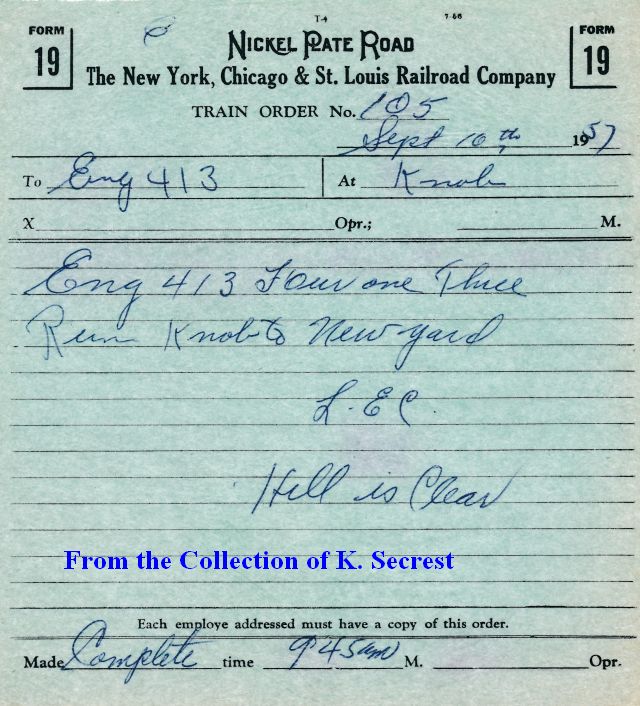 T-4 7-56
FORM 19 NICKEL PLATE ROAD FORM 19
The New York, Chicago & St. Louis Railroad Company
TRAIN ORDER No. 105
Sept 10th 1957
To Eng 413 At Knob
X Opr.; M.
Eng 413 Four one Three
Run Knob to New yard
L. E C
Hill is Clear
From the Collection of K. Secrest
Each employe addressed must have a copy of this order.
Made Complete time 9 45 am M. Opr.